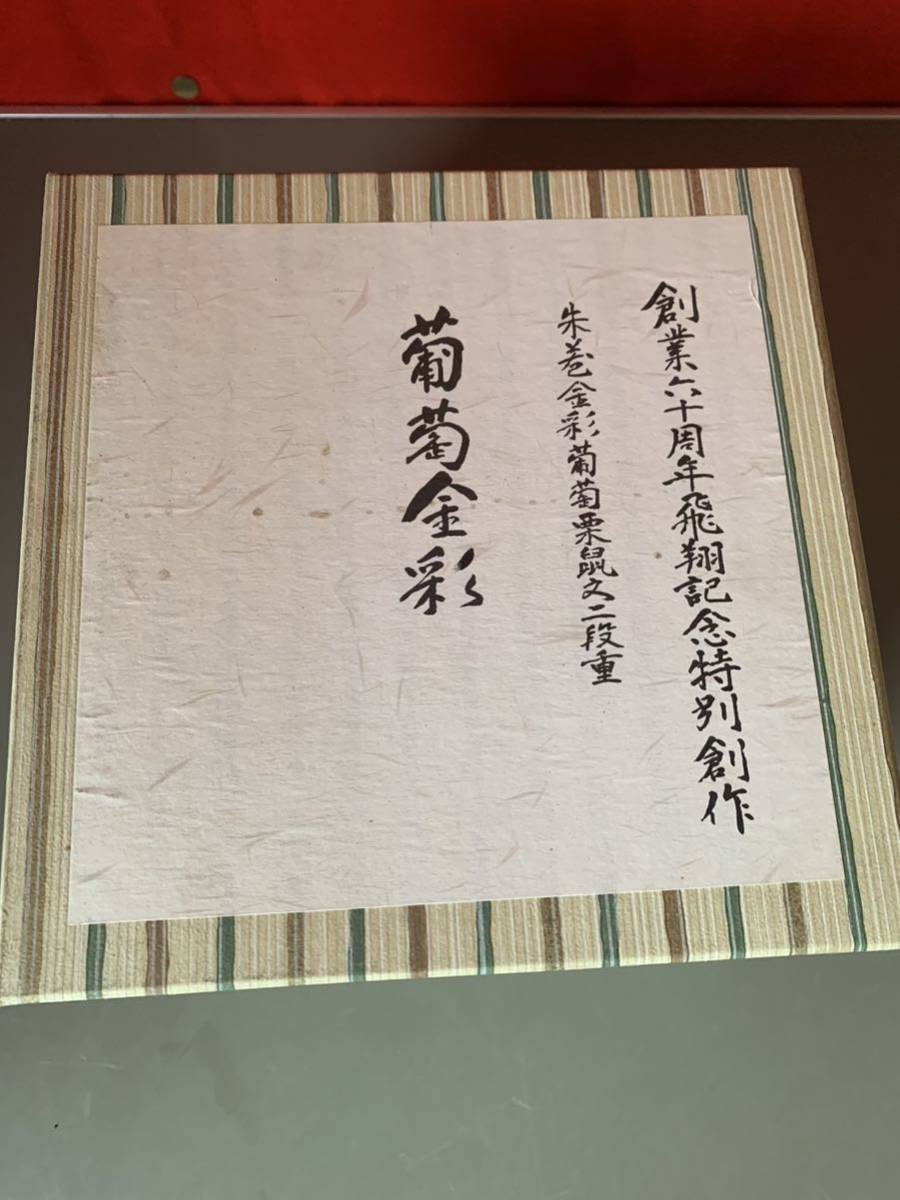 創業六十周年飛翔記念特別創作
朱巻金彩葡萄栗鼠文二段重
葡萄金彩